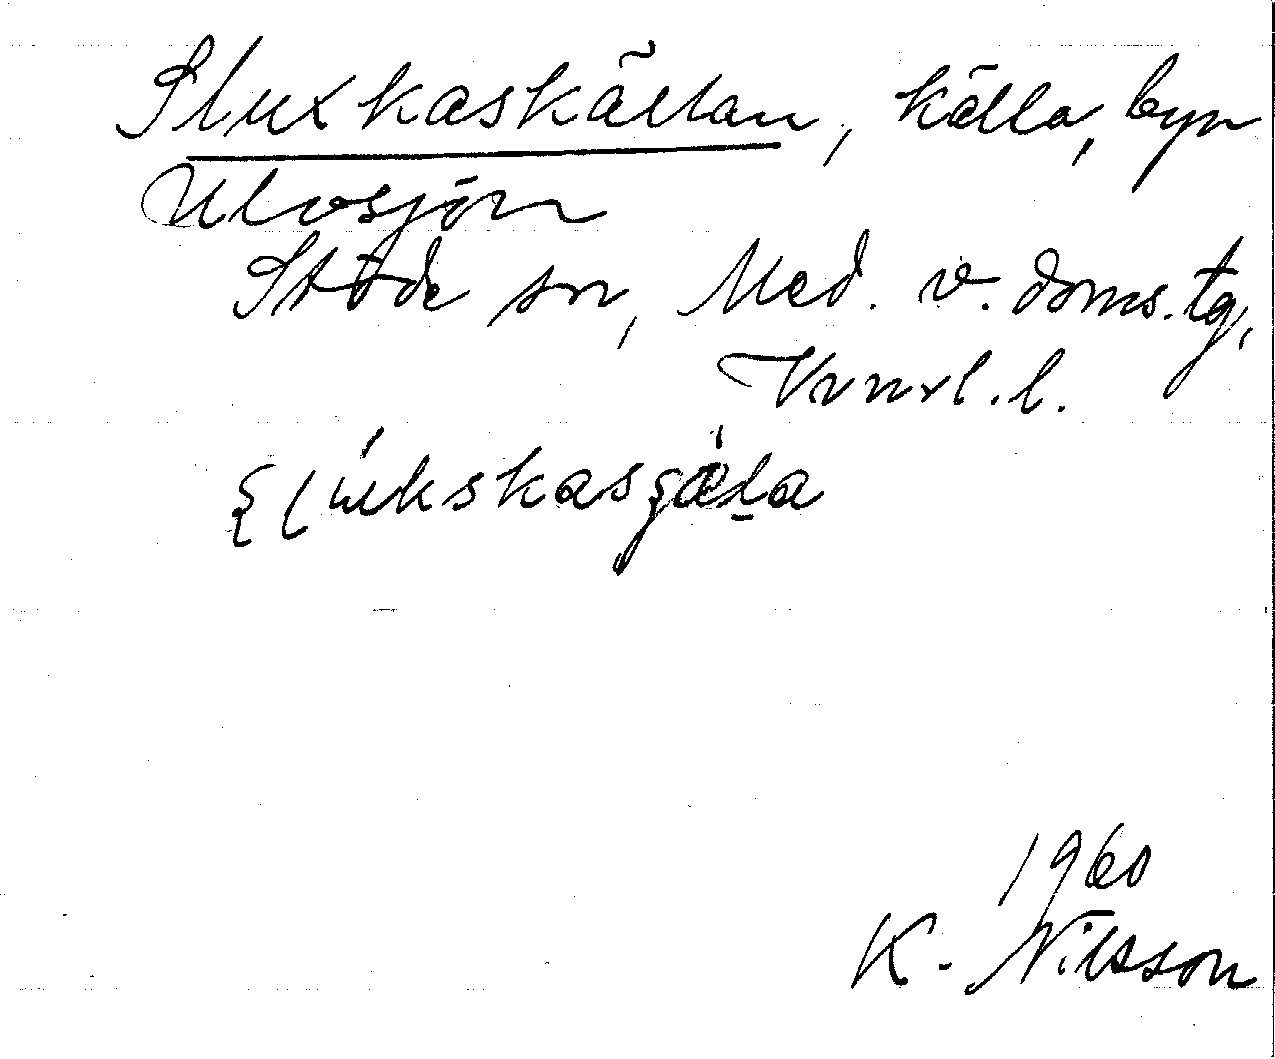 Sluxkaskällan, källa, byn
Ulvsjön
Stöde sn, Med. v. doms. tg,
Vnrl. l.
1960
K. Nilsson